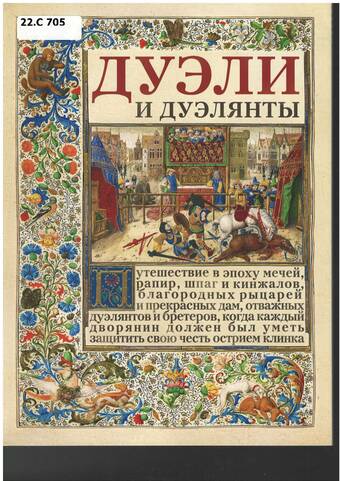 22.С 705
ДУЭЛИ
И ДУЭЛЯНТЫ
Путешествие в эпоху мечей,
рапир, шпаг и кинжалов,
благородных рыцарей
и прекрасных дам, отважных
дуэлянтов и бретеров, когда каждый
дворянин должен был уметь
защитить свою честь острием клинка